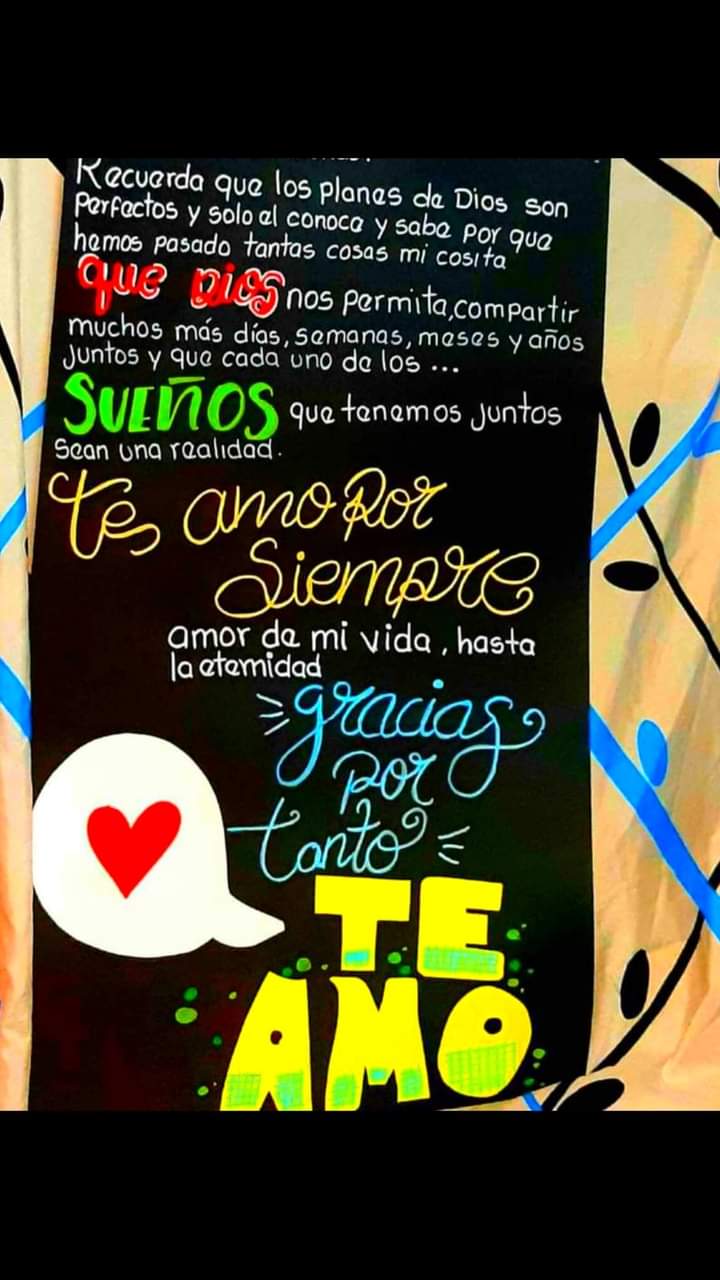 Recuerda que los planes de Dios son
perfectos y solo el conoce y sabe por que
hemos pasado tantas cosas mi cosita
que Dios nos permita, compartir
muchos más días, semanas, meses y años
juntos y que cada uno de los ...
SUEÑOS que tenemos juntos
Sean una realidad.
te amo por
Siempre
amor de mi vida, hasta
la eternidad
gracias
por
tanto
TE
AMO